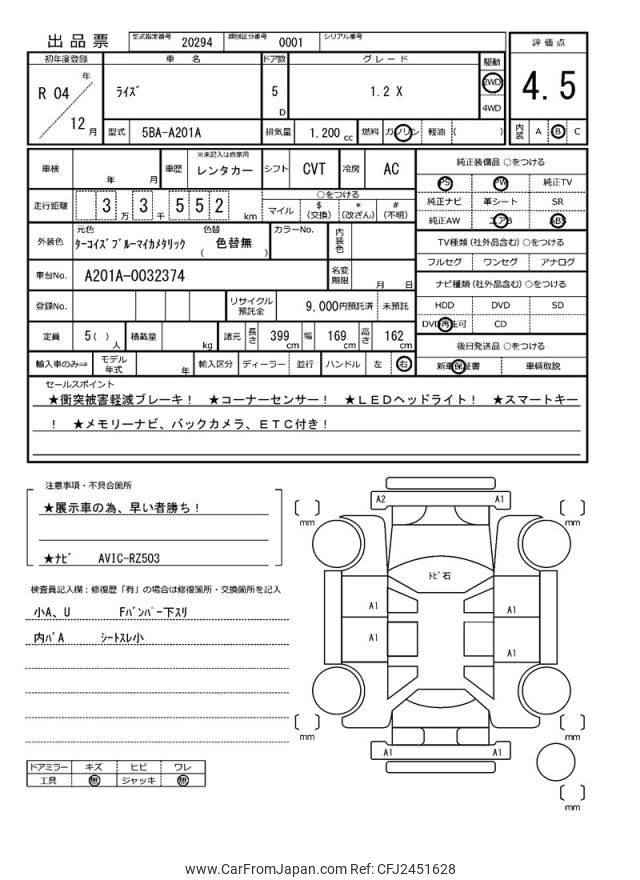 出品票 型式指定番号 20294 類別区分番号 0001 シリアル番号
評価点
4.5
内装 A B C
初年度登録 車名 ドア数 グレード 駆動
R 04 年 12 月
ライズ
5 D
1.2 X
2WD
4WD
型式 5BA-A201A 排気量 1.200 cc 燃料 ガソリン 軽油 ( )
車検 年 月 車歴 ※未記入は自家用 レンタカー シフト CVT 冷房 AC
走行距離 3 万 3 千 5 5 2 km
○をつける
マイル $(交換) *(改ざん) #(不明)
外装色 元色 ターコイズブルーマイカメタリック 色替 ( 色替無 ) カラーNo. 内装色
車台No. A201A-0032374 名変期限 月 日
登録No. リサイクル預託金 9,000円預託済 未預託
定員 5( ) 人 積載量 kg 諸元 長さ 399 cm 幅 169 cm 高さ 162 cm
輸入車のみ⇒ モデル年式 年 輸入区分 ディーラー 並行 ハンドル 左 右
純正装備品 ○をつける
PS PW 純正TV
純正ナビ 革シート SR
純正AW エアB ABS
TV種類(社外品含む)○をつける
フルセグ ワンセグ アナログ
ナビ種類(社外品含む)○をつける
HDD DVD SD
DVD再生可 CD
後日発送品 ○をつける
新車保証書 車輌取説
セールスポイント
★衝突被害軽減ブレーキ! ★コーナーセンサー! ★LEDヘッドライト! ★スマートキー
! ★メモリーナビ、バックカメラ、ETC付き!
注意事項・不具合箇所
★展示車の為、早い者勝ち!
★ナビ AVIC-RZ503
検査員記入欄:修復歴「有」の場合は修復箇所・交換箇所を記入
小A、U Fバンパー下スリ
内バA シートスレ小
ドアミラー キズ ヒビ ワレ
工具 無 ジャッキ 無
A2 A1
mm mm
トビ石
A1 A1
A1 A1
mm mm
A1 A1
mm
www.CarFromJapan.com Ref: CFJ2451628